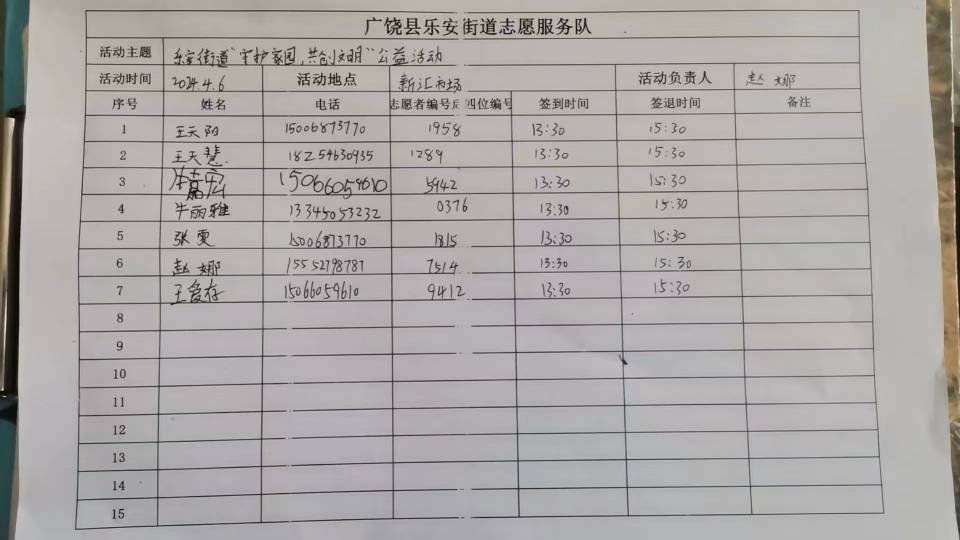 广饶县乐安街道志愿服务队
活动主题 乐安街道“守护家园，共创文明”公益活动
活动时间 2024.4.6 活动地点 新汇市场 活动负责人 赵娜
序号 姓名 电话 志愿者编号后四位编号 签到时间 签退时间 备注
1 王天阳 15006873770 1958 13:30 15:30
2 王天慧 18254630935 1289 13:30 15:30
3 15066059610 5942 13:30 15:30
4 牛丽雅 13345053232 0376 13:30 15:30
5 张雯 15006873770 1815 13:30 15:30
6 赵娜 15552798787 7514 13:30 15:30
7 王爱存 15066059610 9412 13:30 15:30
8
9
10
11
12
13
14
15